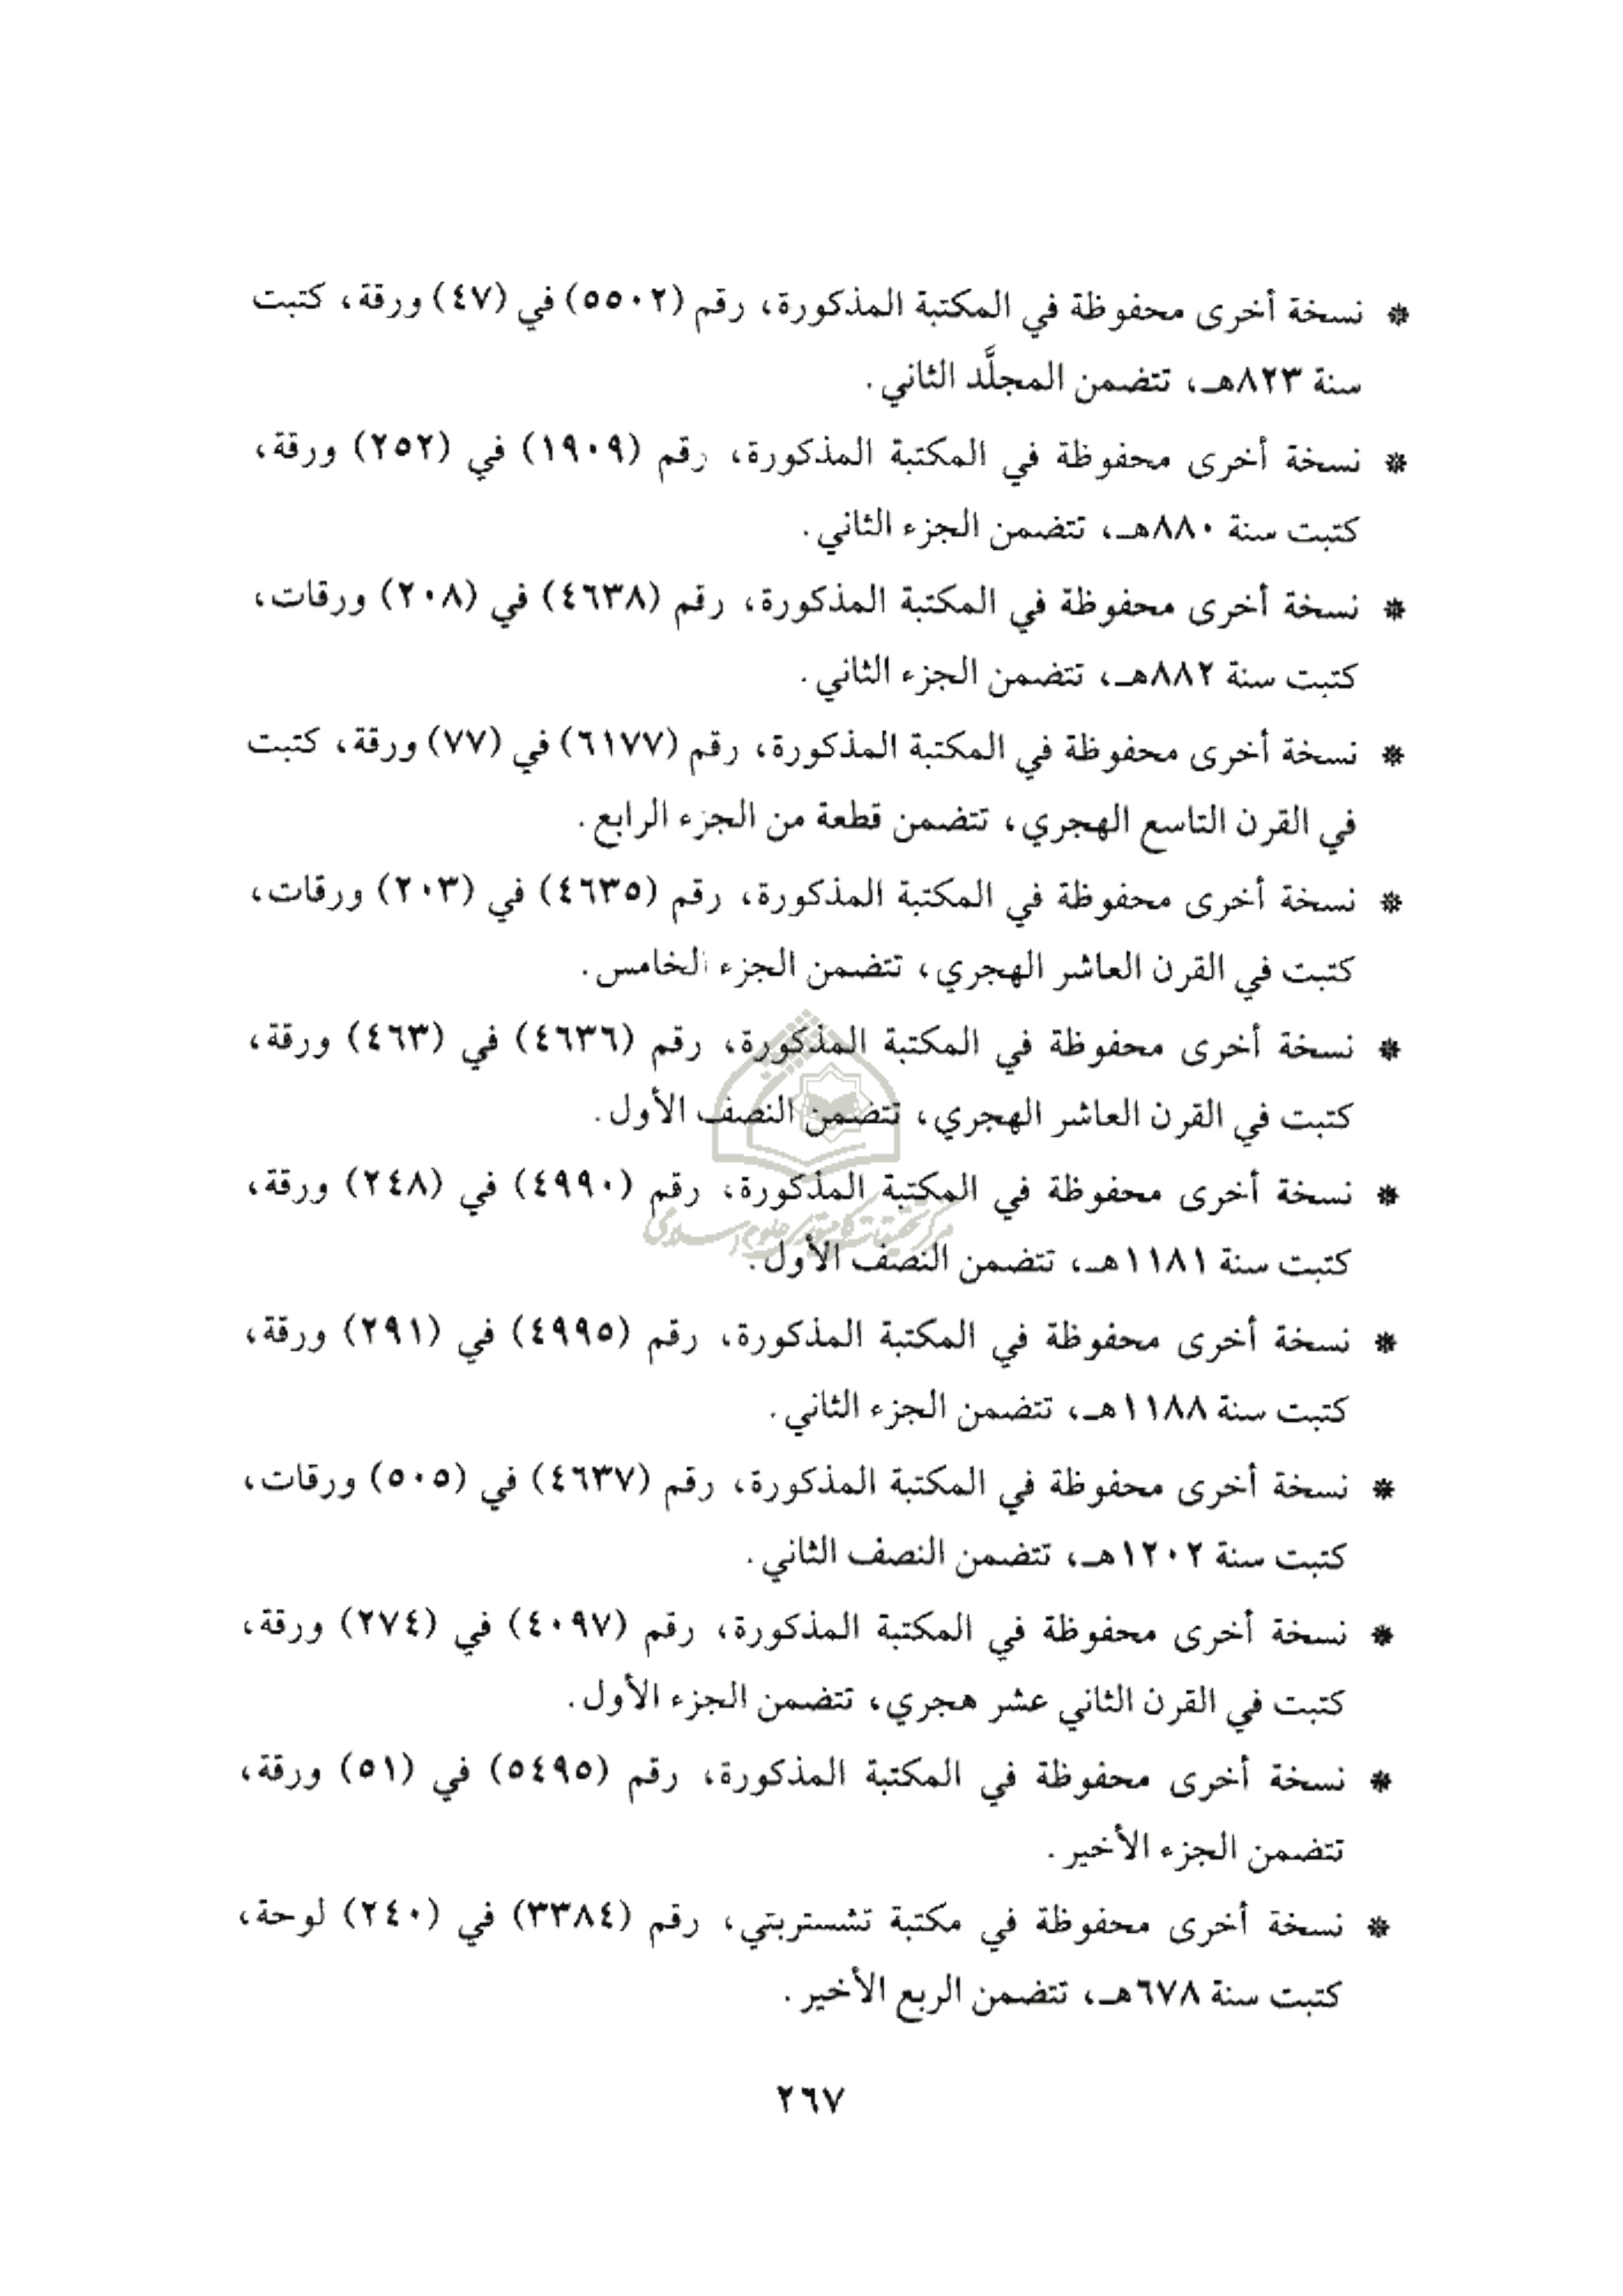 * نسخة أخرى محفوظة في المكتبة المذكورة، رقم (٥٥٠٢) في (٤٧) ورقة، كتبت
سنة ٨٢٣هـ، تتضمن المجلَّد الثاني.
* نسخة أخرى محفوظة في المكتبة المذكورة، رقم (١٩٠٩) في (٢٥٢) ورقة،
كتبت سنة ٨٨٠هـ، تتضمن الجزء الثاني.
* نسخة أخرى محفوظة في المكتبة المذكورة، رقم (٤٦٣٨) في (٢٠٨) ورقات،
كتبت سنة ٨٨٢هـ، تتضمن الجزء الثاني.
* نسخة أخرى محفوظة في المكتبة المذكورة، رقم (٦١٧٧) في (٧٧) ورقة، كتبت
في القرن التاسع الهجري، تتضمن قطعة من الجزء الرابع.
* نسخة أخرى محفوظة في المكتبة المذكورة، رقم (٤٦٣٥) في (٢٠٣) ورقات،
كتبت في القرن العاشر الهجري، تتضمن الجزء الخامس.
* نسخة أخرى محفوظة في المكتبة المذكورة، رقم (٤٦٣٦) في (٤٦٣) ورقة،
كتبت في القرن العاشر الهجري، تتضمن النصف الأول.
* نسخة أخرى محفوظة في المكتبة المذكورة، رقم (٤٩٩٠) في (٢٤٨) ورقة،
مركز تحقيقات كامپيوتری علوم اسلامی
كتبت سنة ١١٨١هـ، تتضمن النصف الأول.
* نسخة أخرى محفوظة في المكتبة المذكورة، رقم (٤٩٩٥) في (٢٩١) ورقة،
كتبت سنة ١١٨٨هـ، تتضمن الجزء الثاني.
* نسخة أخرى محفوظة في المكتبة المذكورة، رقم (٤٦٣٧) في (٥٠٥) ورقات،
كتبت سنة ١٢٠٢هـ، تتضمن النصف الثاني.
* نسخة أخرى محفوظة في المكتبة المذكورة، رقم (٤٠٩٧) في (٢٧٤) ورقة،
كتبت في القرن الثاني عشر هجري، تتضمن الجزء الأول.
* نسخة أخرى محفوظة في المكتبة المذكورة، رقم (٥٤٩٥) في (٥١) ورقة،
تتضمن الجزء الأخير.
* نسخة أخرى محفوظة في مكتبة تشستربتي، رقم (٣٣٨٤) في (٢٤٠) لوحة،
كتبت سنة ٦٧٨هـ، تتضمن الربع الأخير.
٢٦٧